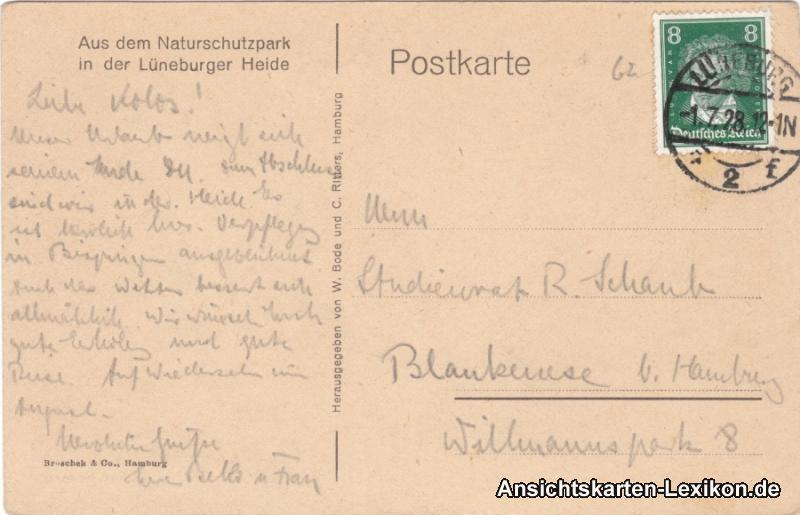 Aus dem Naturschutzpark
in der Lüneburger Heide
Postkarte
62
8 8
Deutsches Reich
LÜNEBURG
-1.7.28.12-1N
2 f
Liebe Kolos!
Unser Urlaub neigt sich
seinem Ende zu. Zum Abschluss
sind wir in der Heide. Es
ist herrlich hier. Verpflegung
in Bispingen ausgezeichnet
Auch das Wetter bessert sich
allmählich. Wir wünschen Euch
gute Erholung und gute
Reise. Auf Wiedersehen im
August.
Herzliche Grüße
Euer u Frau
Broschek & Co., Hamburg
Herausgegeben von W. Bode und C. Ritters, Hamburg
Herrn
Studienrat R. Schaub
Blankenese b. Hamburg
Willmannspark 8
Ansichtskarten-Lexikon.de